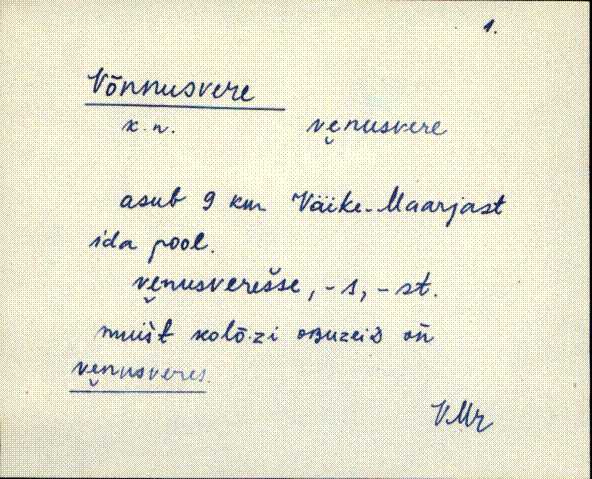 1.
Võnnusvere
k.n. ve̬nusvere
asub 9 km Väike-Maarjast
ida pool.
ve̬nusverešse, -s, -st.
muišt kolō·zi oʙuzeiᴅ oń
ve̬nusveres.
VMr